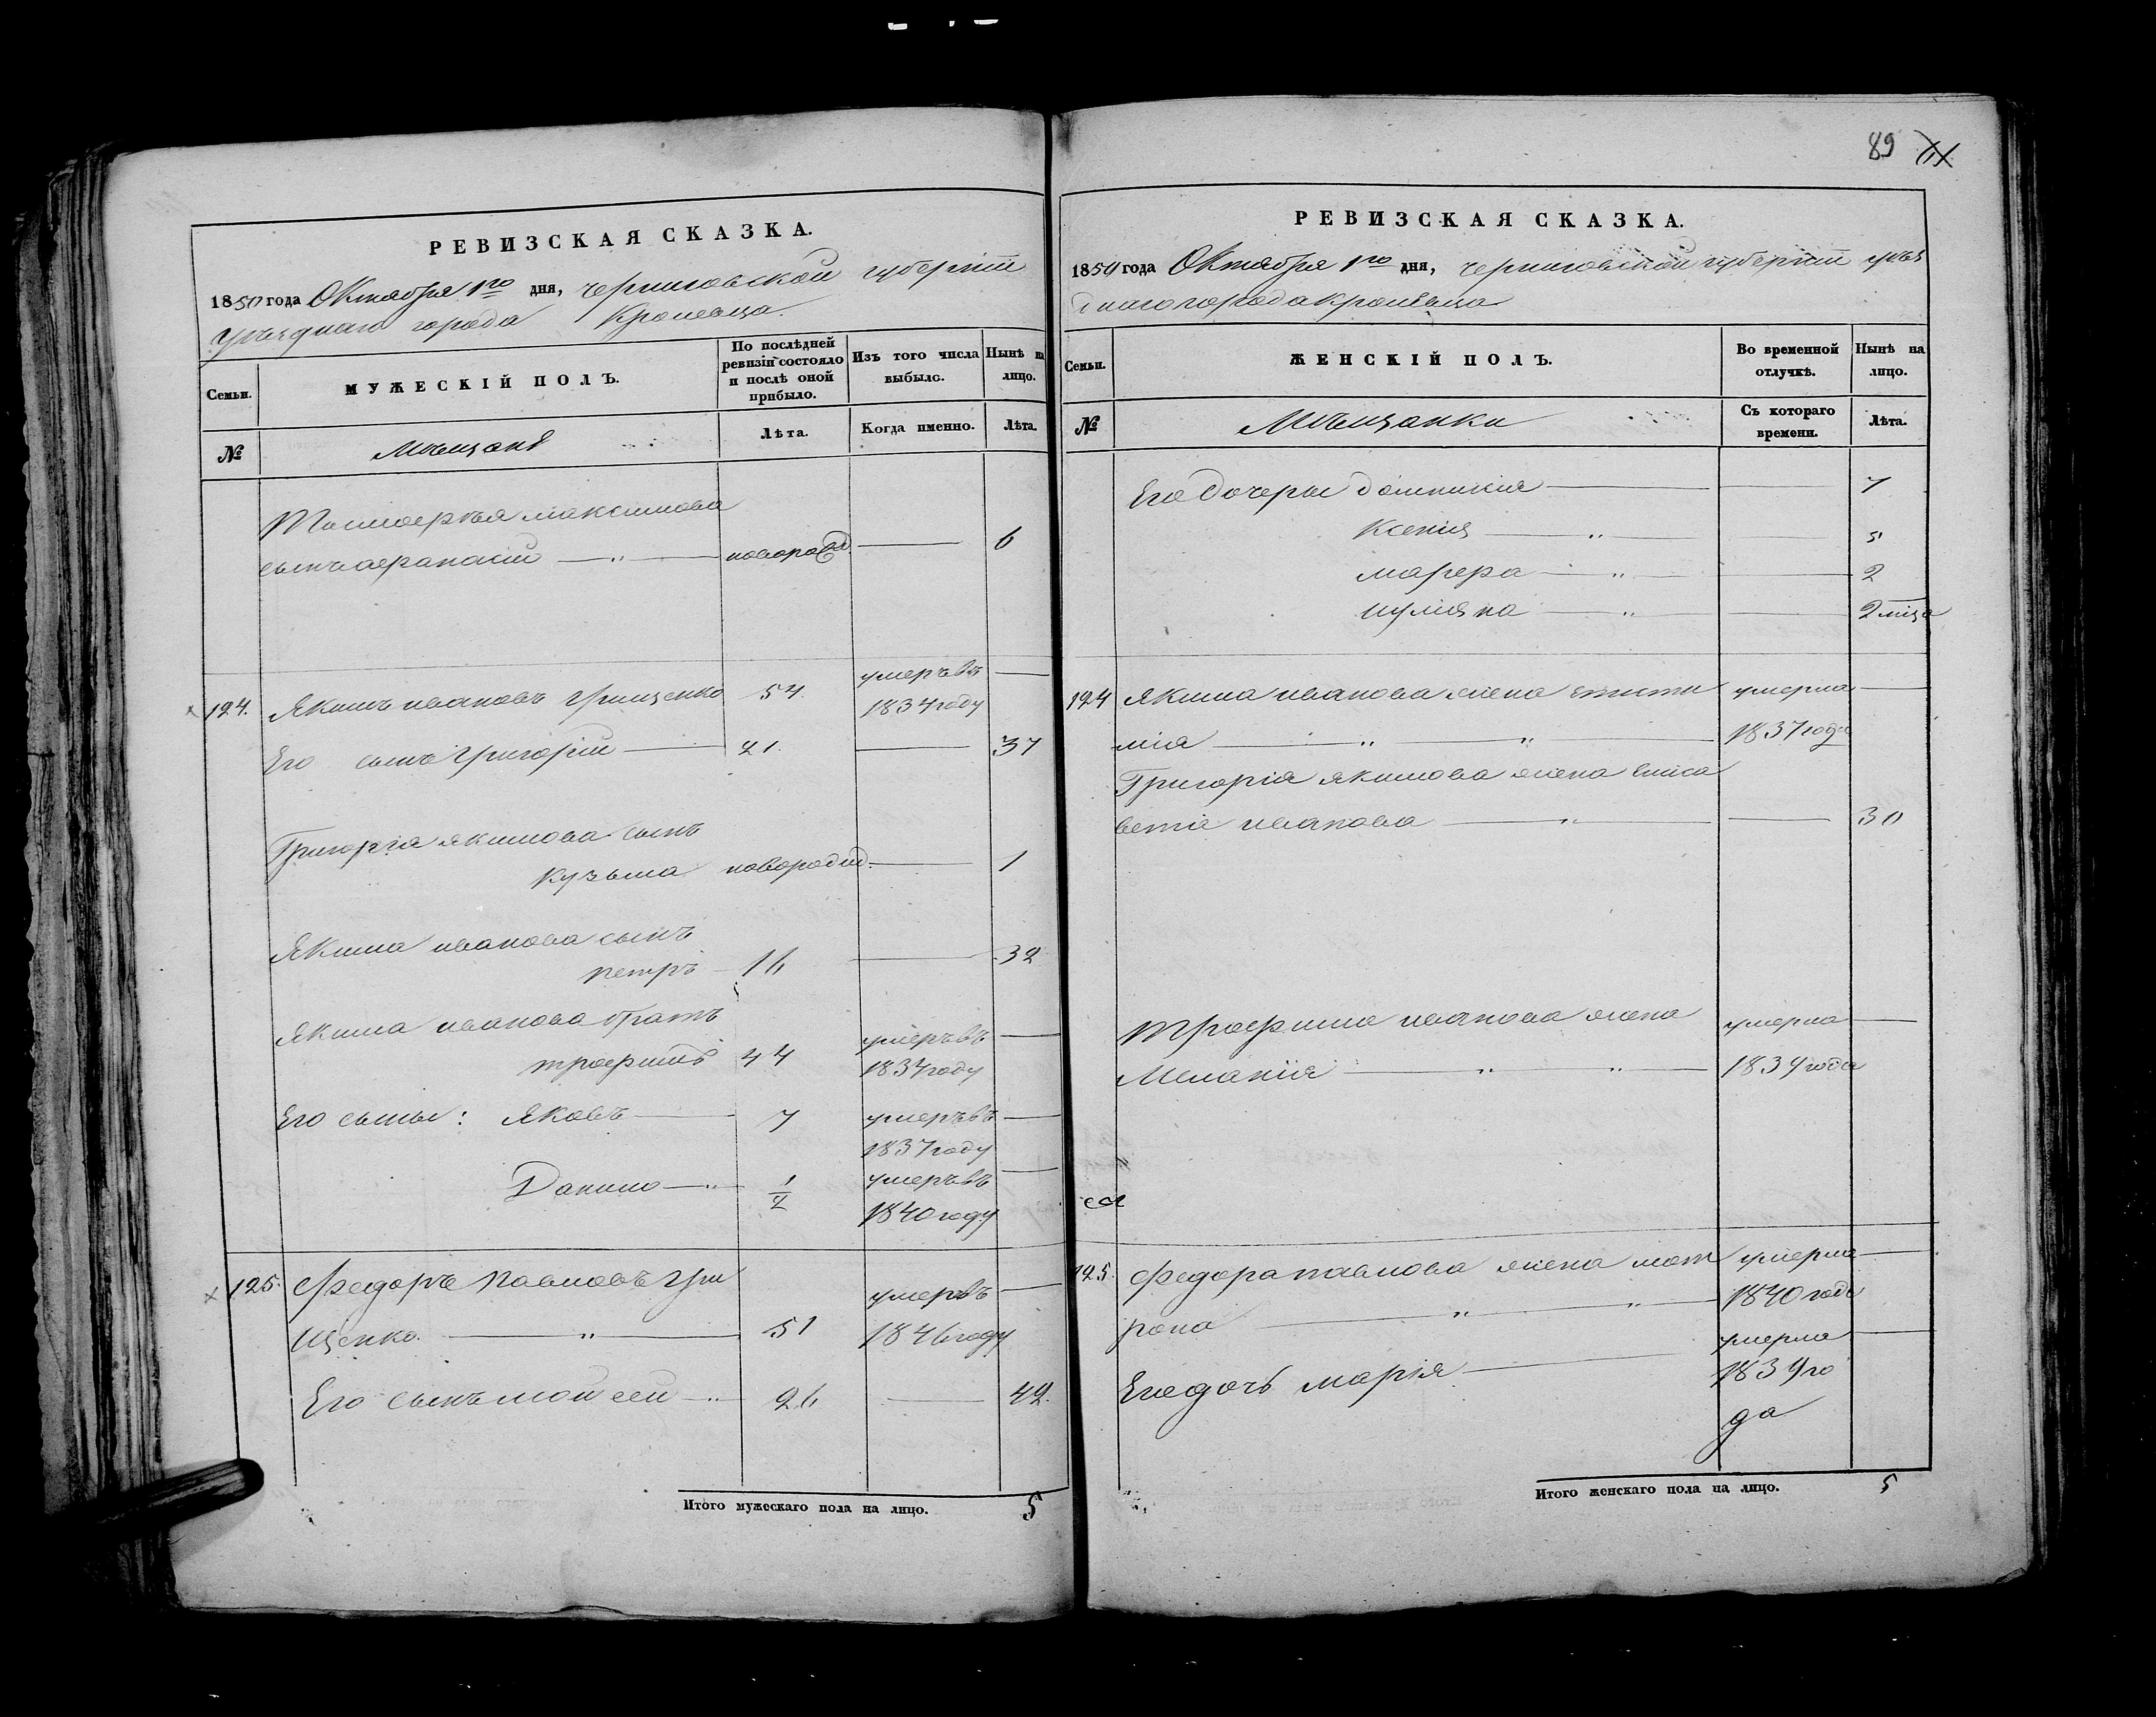 89
РЕВИЗСКАЯ СКАЗКА.
1850 года Октября 1го дня, черниговской губернiи
уѣзднаго города Кролевца.
Семьи.
МУЖЕСКIЙ ПОЛЪ.
По послѣдней
ревизiи состояло
и послѣ оной
прибыло.
Изъ того числа
выбыло.
Нынѣ на
лицо.
№
Мѣщанѣ
Лѣта.
Когда именно.
Лѣта.
максимова
сынъ афанасiй — „ — новорожд. — 6
124. Якимъ ивановъ грищенко 54. умеръ въ —
1834 году
Его сынъ григорiй — 21. — 37
Григорiя якимова сынъ
кузьма новорожд. — 1
Якима иванова сынъ
петръ — 16 — 32
Якима иванова братъ
трофимъ 44 умеръ въ —
1834 году
Его сыны: Яковъ — 7 умеръ въ —
1837 году
Данило — „ — 1/2 умеръ въ —
1840 году
125. Федоръ павловъ гри
щенко. — „ — 51 умеръ въ —
1846 году
Его сынъ мойсей — „ 26 — 42.
Итого мужескаго пола на лицо. 5
РЕВИЗСКАЯ СКАЗКА.
1850 года Октября 1го дня, черниговской губернiи уѣз
днаго города кролевца
Семьи.
ЖЕНСКIЙ ПОЛЪ.
Во временной
отлучкѣ.
Нынѣ на
лицо.
№
Мѣщанки
Съ котораго
времени.
Лѣта.
Его дочеры домникiя — — 7
Ксенiя — „ — 5
марфа — „ — 2
иулiяна — „ — 2 мца
124 Якима иванова жена
мiя — „ — „ — умерла —
1837 года
Григорiя якимова жена елиса
ветiя иванова — „ — — 30
Трофима иванова жена умерла —
Меланiя — „ — „ — 1839 года
125. Федора павлова жена мат умерла —
рона — „ — „ — 1840 года
Его дочь марiя — умерла —
1839 го
да
Итого женскаго пола на лицо. 5